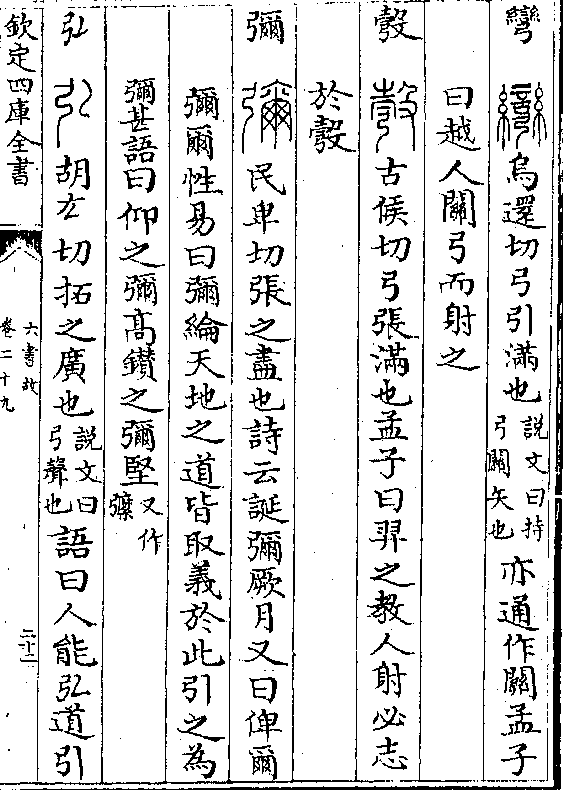 彎 彎 烏還切弓引滿也說文曰持弓關矢也亦通作關孟子
曰越人關弓而射之
彀 彀 古候切弓張滿也孟子曰羿之教人射必志
於彀
彌 彌 民卑切張之盡也詩云誕彌厥月又曰俾爾
彌爾性易曰彌綸天地之道皆取義於此引之為
彌甚語曰仰之彌高鑚之彌堅又作㢱
弘 弘 胡厷切拓之廣也說文曰弓聲也語曰人能弘道引
欽定四庫全書
六書故
卷二十九
二十二